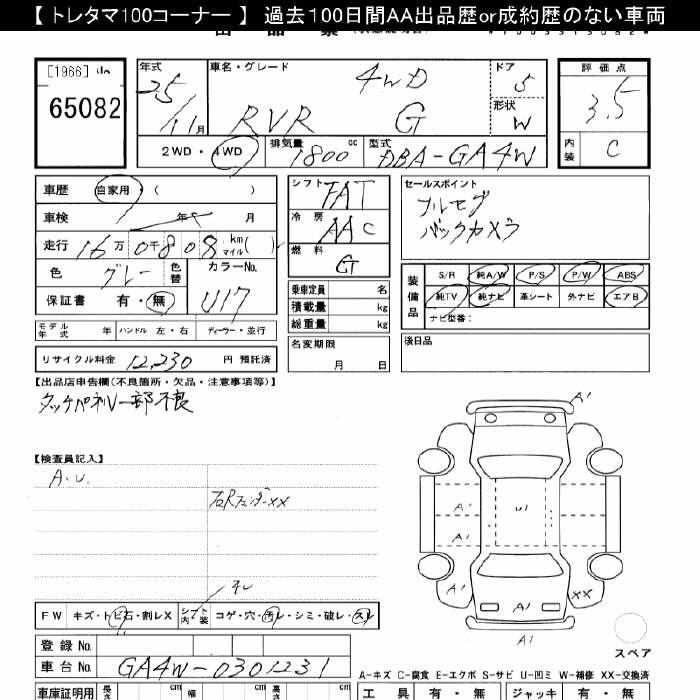 【 トレタマ100コーナー 】 過去100日間AA出品歴or成約歴のない車両
[1966]
65082
年式 25 / 11月
車名・グレード 4WD
RVR G
ドア 5
形状 W
評価点 3.5
内装 C
2WD・4WD 排気量 1800 cc 型式 DBA-GA4W
車歴 自家用 ・ ( )
車検 年 月
走行 16万0千808 km マイル( )
色 グレー 色替 カラーNo. U17
保証書 有・無
モデル年式 年 ハンドル 左・右 ディーラー・並行
リサイクル料金 12,230 円 預託済
シフト FAT
冷房 AAC
燃料 G
乗車定員 名
積載量 kg
総重量 kg
名変期限
月 日
セールスポイント
フルセグ
バックカメラ
装備品 S/R 純A/W P/S P/W ABS
純TV 純ナビ 革シート 外ナビ エアB
ナビ型番:
後日品
【出品店申告欄(不良箇所・欠品・注意事項等)】
タッチパネル一部不良
【検査員記入】
A・U.
右Rフェンダーxx
スレ
FW キズ・トビ石・割レX シフト内装 コゲ・穴・汚レ・シミ・破レ・スレ
登録No.
車台No. GA4W-0301231
車庫証明用 長さ cm 幅 cm 高さ cm
A'
A'
U1
A'
A'
A1
XX
A1
スペア
A-キズ C-腐食 E-エクボ S-サビ U-凹ミ W-補修 XX-交換済
工具 有・無 ジャッキ 有・無